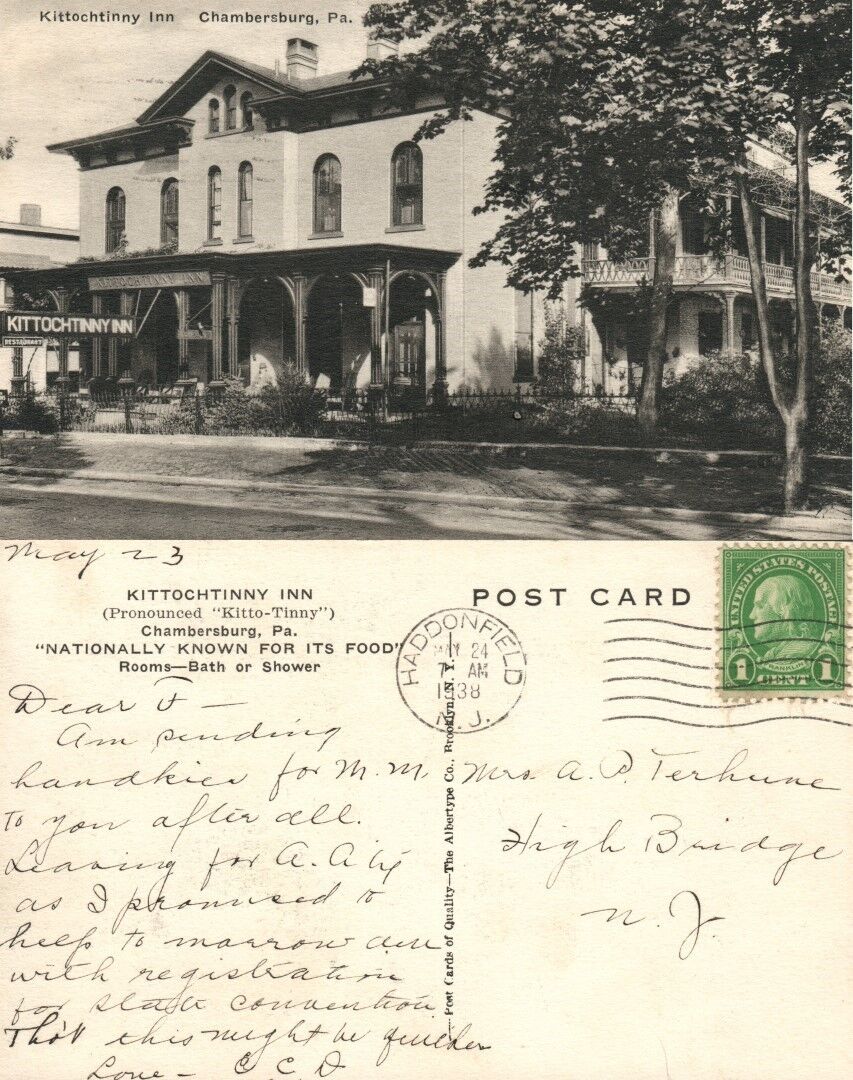 Kittochtinny Inn Chambersburg, Pa.
KITTOCHTINNY INN
KITTOCHTINNY INN
RESTAURANT
May 23
KITTOCHTINNY INN
(Pronounced "Kitto-Tinny")
Chambersburg, Pa.
"NATIONALLY KNOWN FOR ITS FOOD"
Rooms—Bath or Shower
POST CARD
HADDONFIELD
MAY 24
7 AM
1938
N.J.
UNITED STATES POSTAGE
1 FRANKLIN 1
Dear F —
Am sending
handkies for M. M
to you after all.
Leaving for A.
as I promised to
help to morrow
with registration
for state convention.
Tho't this might be quicker
Love — C C D
Post Cards of Quality—The Albertype Co., Brooklyn, N. Y.
Mrs A. P. Terhune
High Bridge
N. J.